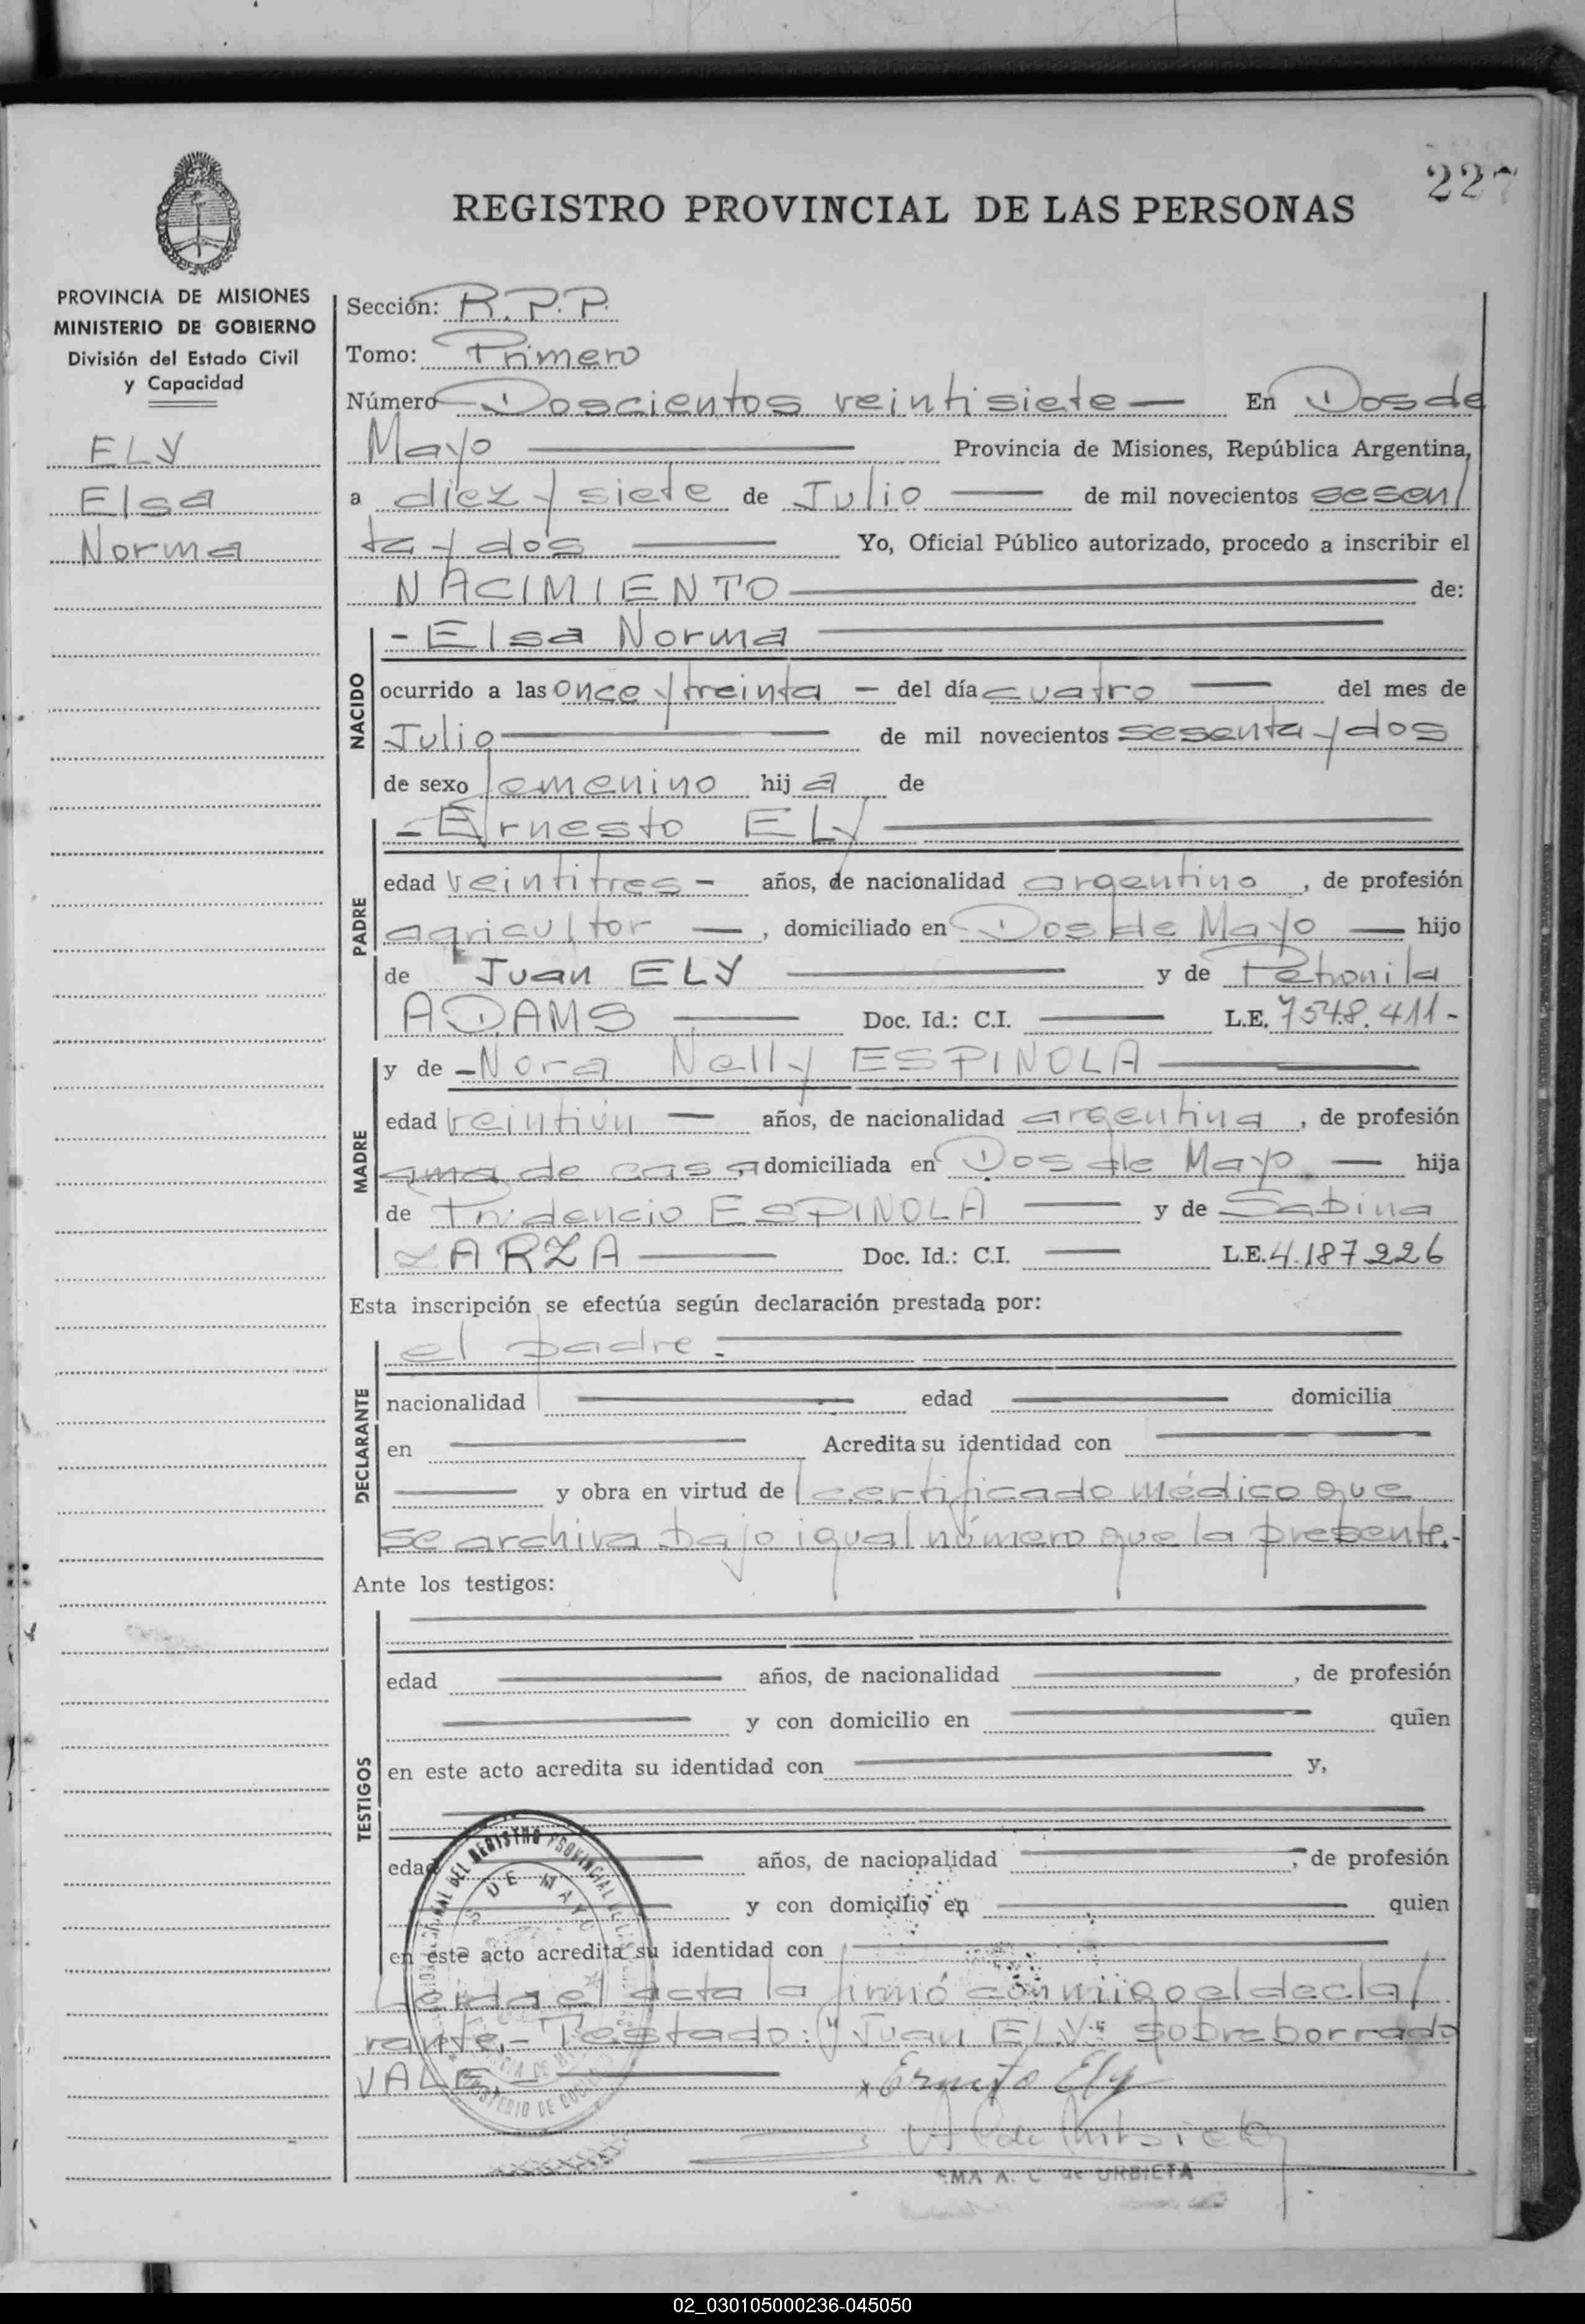 227
REGISTRO PROVINCIAL DE LAS PERSONAS
PROVINCIA DE MISIONES
MINISTERIO DE GOBIERNO
División del Estado Civil
y Capacidad
ELY
Elsa
Norma
Sección: R.P.P.
Tomo: Primero
Número Doscientos veintisiete — En Dos de
Mayo — Provincia de Misiones, República Argentina,
a diez y siete de Julio — de mil novecientos sesen/
ta y dos — Yo, Oficial Público autorizado, procedo a inscribir el
NACIMIENTO — de:
NACIDO
- Elsa Norma —
ocurrido a las once y treinta — del día cuatro — del mes de
Julio — de mil novecientos sesenta y dos
de sexo femenino hija de
PADRE
- Ernesto ELY —
edad veintitres - años, de nacionalidad argentino, de profesión
agricultor —, domiciliado en Dos de Mayo — hijo
de Juan ELY — y de Petronila
ADAMS — Doc. Id.: C.I. — L.E. 7548.411-
MADRE
y de - Nora Nelly ESPINOLA —
edad veintiún — años, de nacionalidad argentina, de profesión
ama de casa, domiciliada en Dos de Mayo — hija
de Prudencio ESPINOLA — y de Sabina
ZARZA — Doc. Id.: C.I. — L.E. 4.187.226
Esta inscripción se efectúa según declaración prestada por:
DECLARANTE
el padre.—
nacionalidad — edad — domicilia
en — Acredita su identidad con —
— y obra en virtud de certificado médico que
se archiva bajo igual número que la presente.-
Ante los testigos:
TESTIGOS
—
edad — años, de nacionalidad —, de profesión
— y con domicilio en — quien
en este acto acredita su identidad con — y,
—
edad — años, de nacionalidad —, de profesión
— y con domicilio en — quien
en este acto acredita su identidad con —
Leida el acta la firmó conmiigo el decla/
rante.- Testado: "Juan ELY" sobreborrado
VALE —
Ernesto Ely
A. C. de URBIETA
DEL REGISTRO PROVINCIAL DE LAS
DE MAYO
02_030105000236-045050